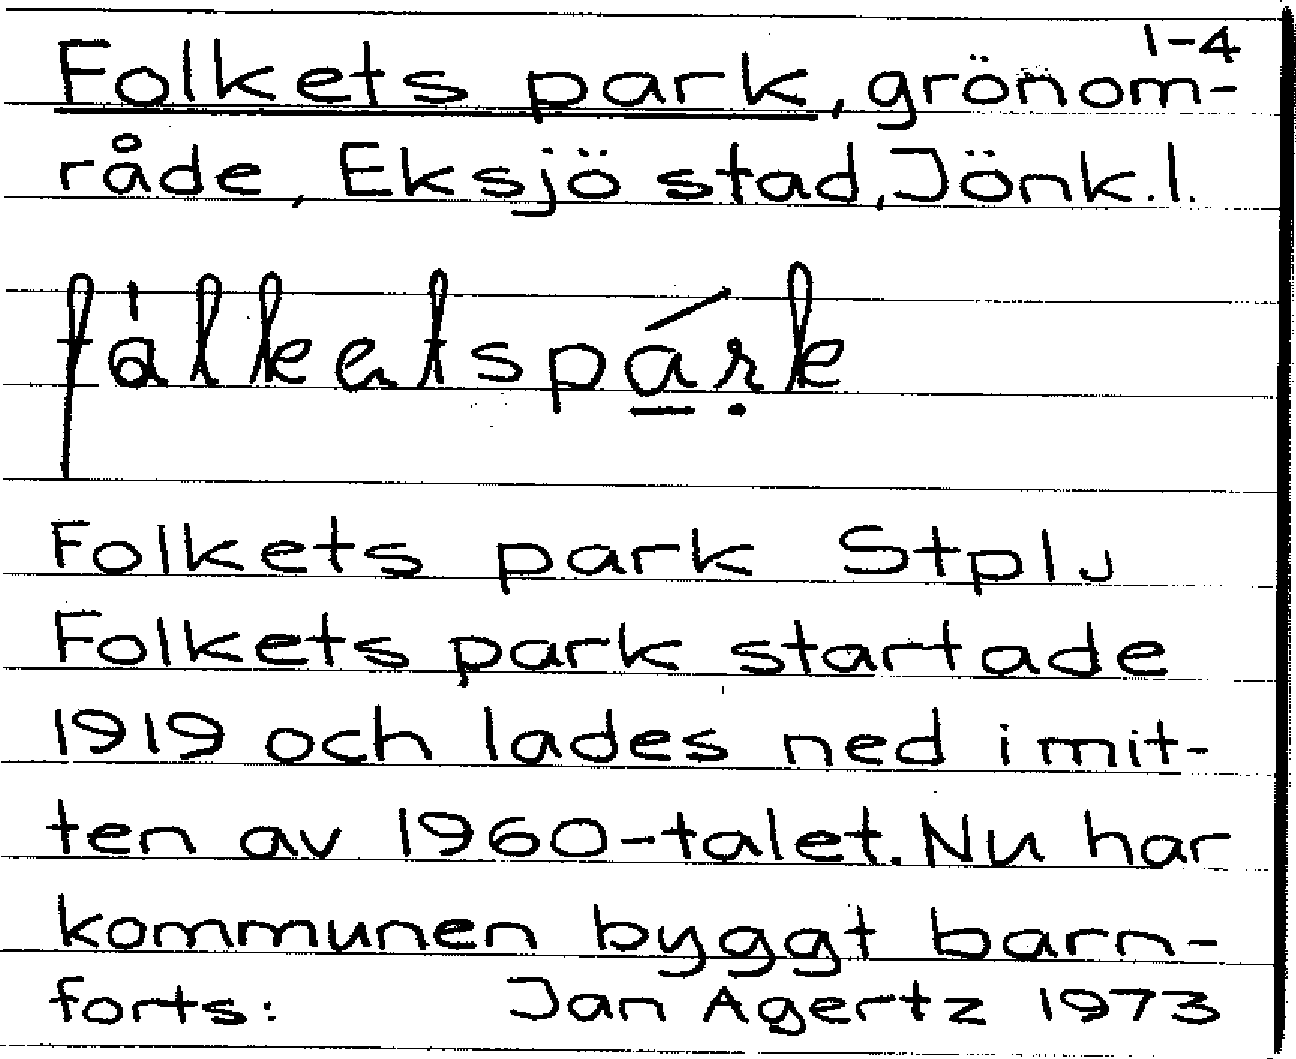 1-4
Folkets park, grönom-
råde, Eksjö stad, Jönk.l.
fålkatspárk
Folkets park Stplj
Folkets park startade
1919 och lades ned i mit-
ten av 1960-talet. Nu har
kommunen byggt barn-
forts: Jan Agertz 1973